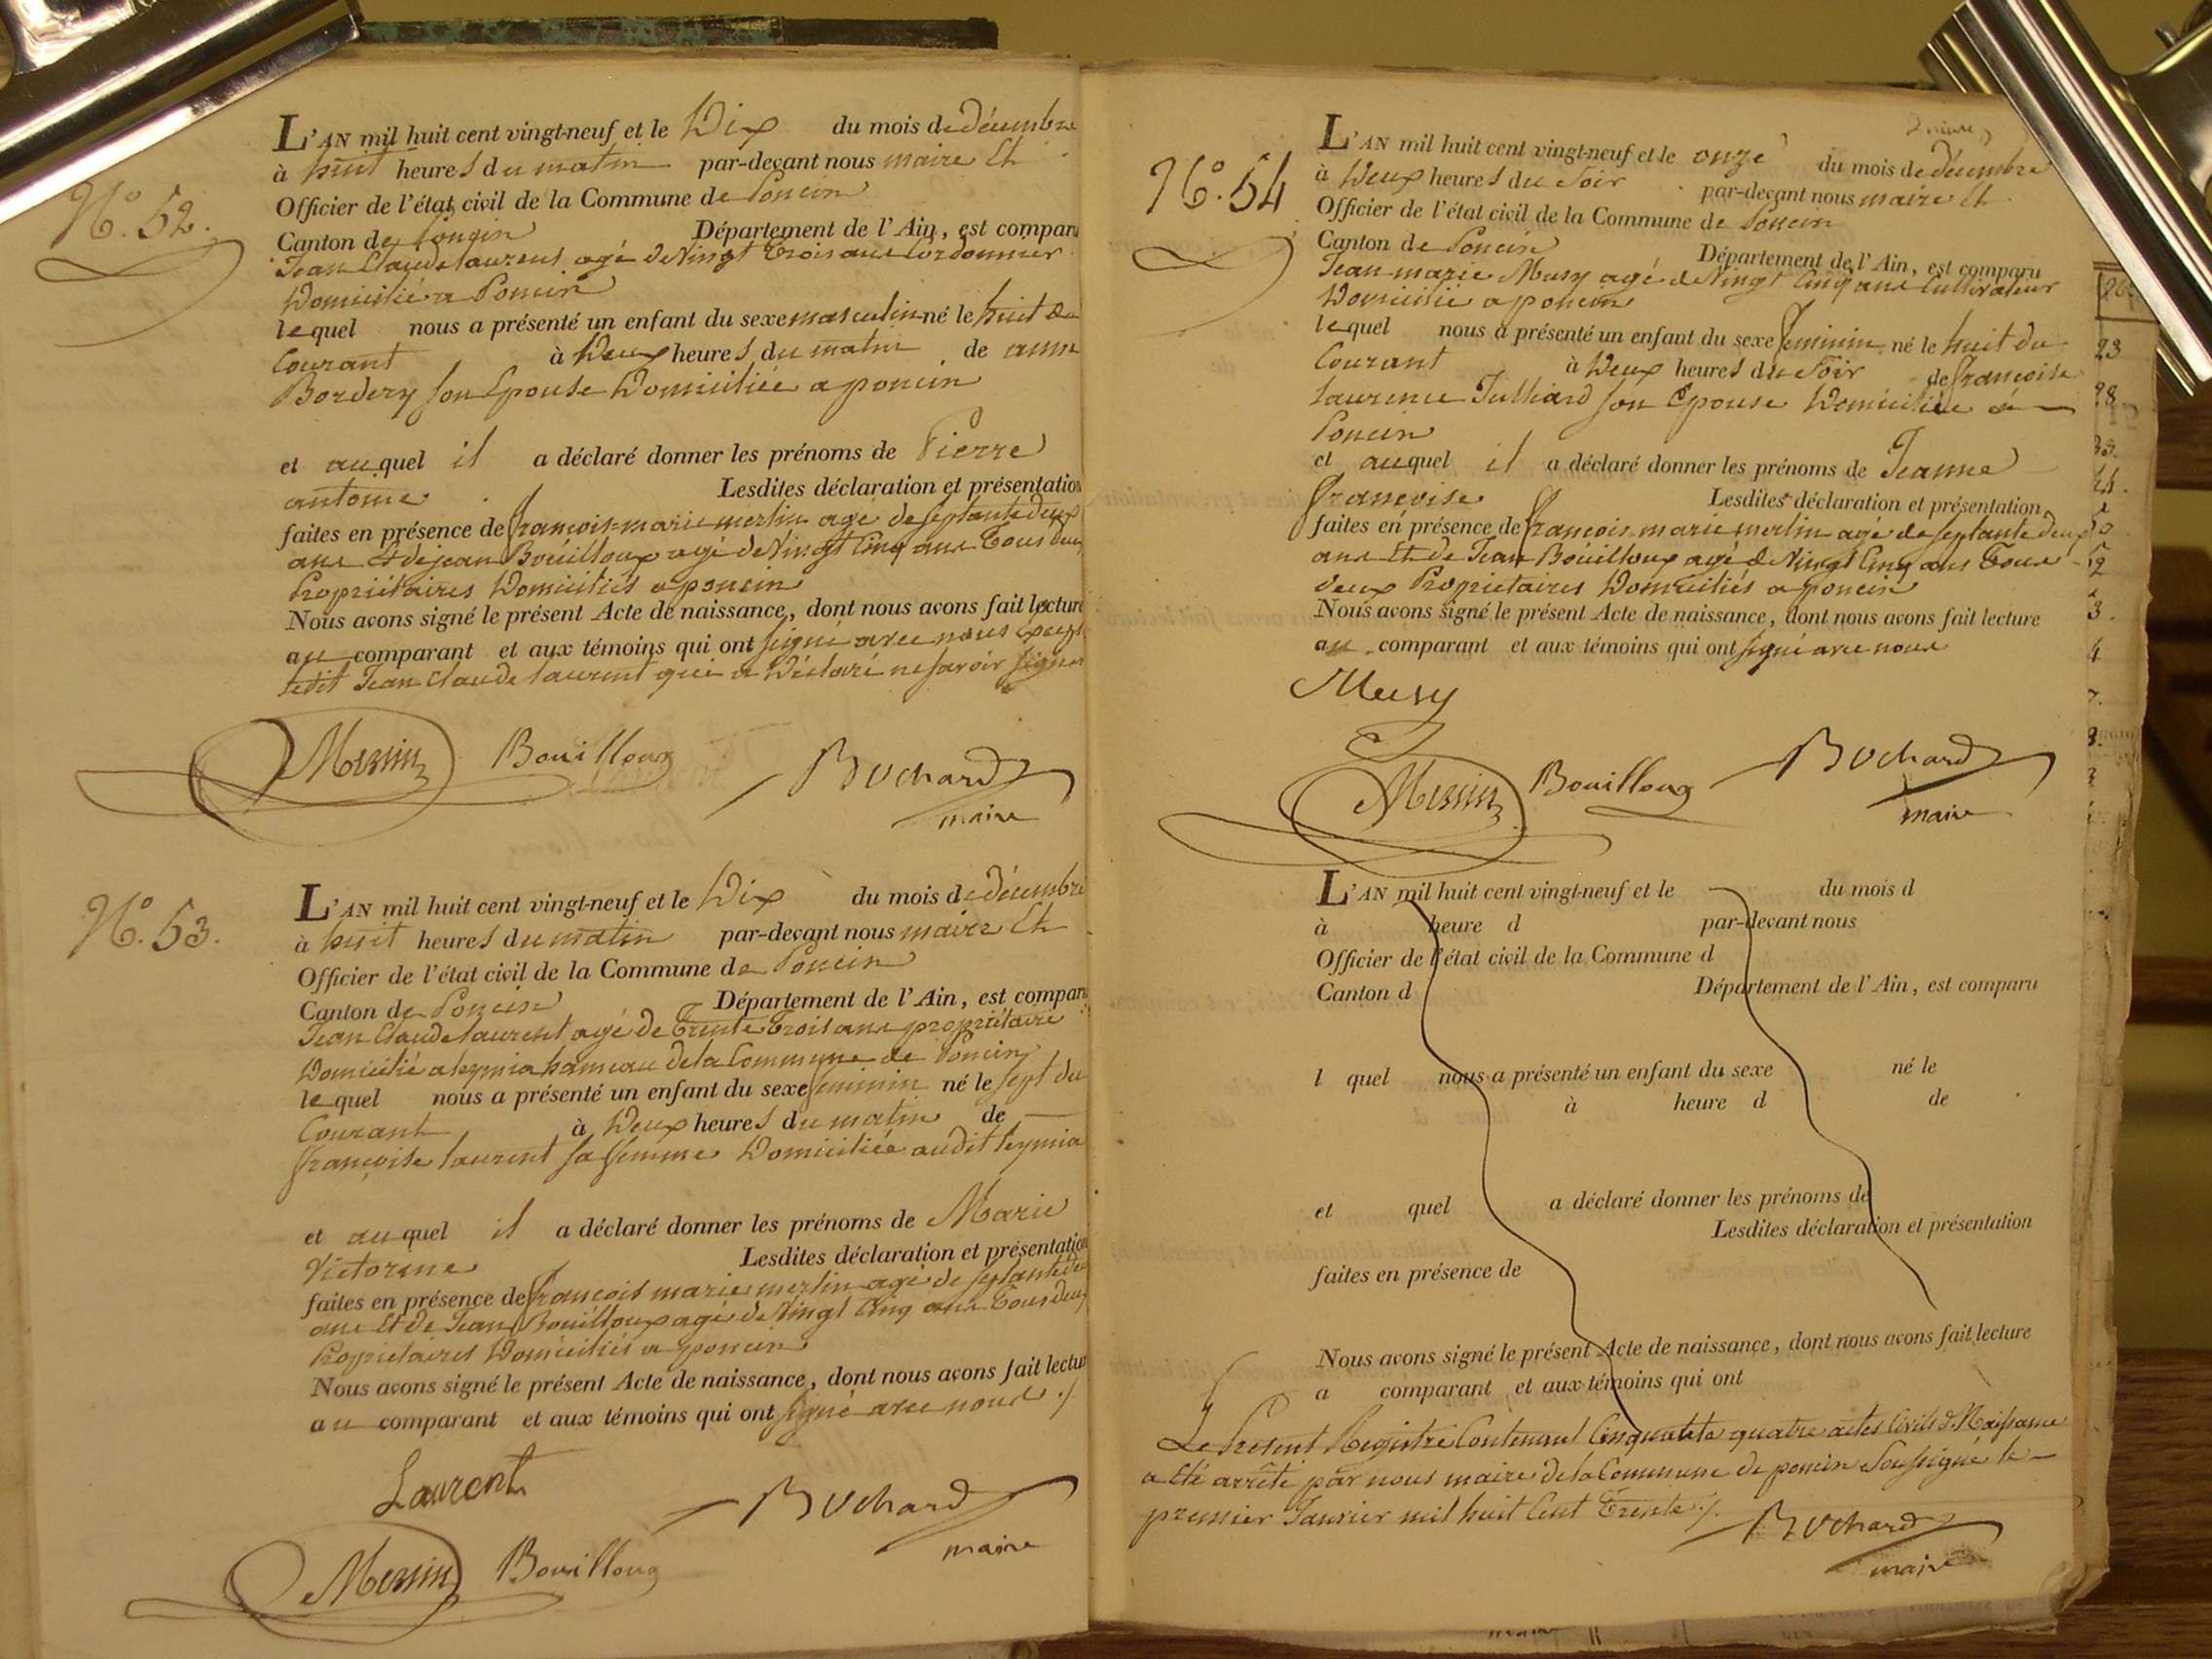 N.° 52.
L'AN mil huit cent vingt-neuf et le Dix du mois de décembre
à huit heures du matin par-devant nous maire Et
Officier de l'état civil de la Commune de Poncin
Canton de Poncin Département de l'Ain, est comparu
Jean Claude laurent agé de Vingt Trois ans Cordonnier
Domicilié a Poncin
lequel nous a présenté un enfant du sexe masculin né le huit du
Courant à Deux heures du matin de anne
Bordery son Epouse Domiciliée a poncin
et auquel il a déclaré donner les prénoms de Pierre
antoine Lesdites déclaration et présentation
faites en présence de françois-marie merlin agé de septante deux
ans Et de jean Bouilloux agé de Vingt Cinq ans Tous deux
Propriétaires Domiciliés a poncin
Nous avons signé le présent Acte de naissance, dont nous avons fait lecture
au comparant et aux témoins qui ont signé avec nous excepté
ledit Jean Claude laurent qui a Déclaré ne savoir signer
Merlin Bouilloux Bochard
maire
N.° 53.
L'AN mil huit cent vingt-neuf et le Dix du mois de décembre
à huit heures du matin par-devant nous maire Et
Officier de l'état civil de la Commune de Poncin
Canton de Poncin Département de l'Ain, est comparu
Jean Claude laurent agé de Trente Trois ans propriétaire
Domicilié a leymia hameau de la Commune de Poncin
lequel nous a présenté un enfant du sexe feminin né le sept du
Courant à Deux heures du matin de
françoise laurent sa femme Domiciliée audit leymia
et auquel il a déclaré donner les prénoms de Marie
Victorine Lesdites déclaration et présentation
faites en présence de françois marie merlin agé de septante deux
ans Et de Jean Bouilloux agé de Vingt Cinq ans Tous deux
Propriétaires Domiciliés a poncin
Nous avons signé le présent Acte de naissance, dont nous avons fait lecture
au comparant et aux témoins qui ont signé avec nous ./
Laurent
Bochard
maire
Merlin Bouilloux
N.° 54
L'AN mil huit cent vingt-neuf et le onze du mois de décembre
à Deux heures du Soir par-devant nous maire Et
Officier de l'état civil de la Commune de Poncin
Canton de Poncin Département de l'Ain, est comparu
Jean marie Musy agé de Vingt Cinq ans Cultivateur
Domicilié a poncin
lequel nous a présenté un enfant du sexe feminin né le huit du
Courant à Deux heures du Soir de françoise
laurence Julliard son Epouse Domiciliée à
Poncin
et auquel il a déclaré donner les prénoms de Jeanne
françoise Lesdites déclaration et présentation
faites en présence de françois marie merlin agé de septante deux
ans Et de Jean Bouilloux agé de Vingt Cinq ans Tous
deux Propriétaires Domiciliés a poncin
Nous avons signé le présent Acte de naissance, dont nous avons fait lecture
au comparant et aux témoins qui ont signé avec nous
Musy
Merlin Bouilloux Bochard
maire
L'AN mil huit cent vingt-neuf et le du mois d
à heure d par-devant nous
Officier de l'état civil de la Commune d
Canton d Département de l'Ain, est comparu
l quel nous a présenté un enfant du sexe né le
à heure d de
et quel a déclaré donner les prénoms de
Lesdites déclaration et présentation
faites en présence de
Nous avons signé le présent Acte de naissance, dont nous avons fait lecture
a comparant et aux témoins qui ont
Le Present Registre Contenant Cinquante quatre actes Civils de Naissance
a Eté arrêté par nous maire de la Commune de poncin Soussigné le
premier Janvier mil huit Cent Trente ./.
Bochard
maire